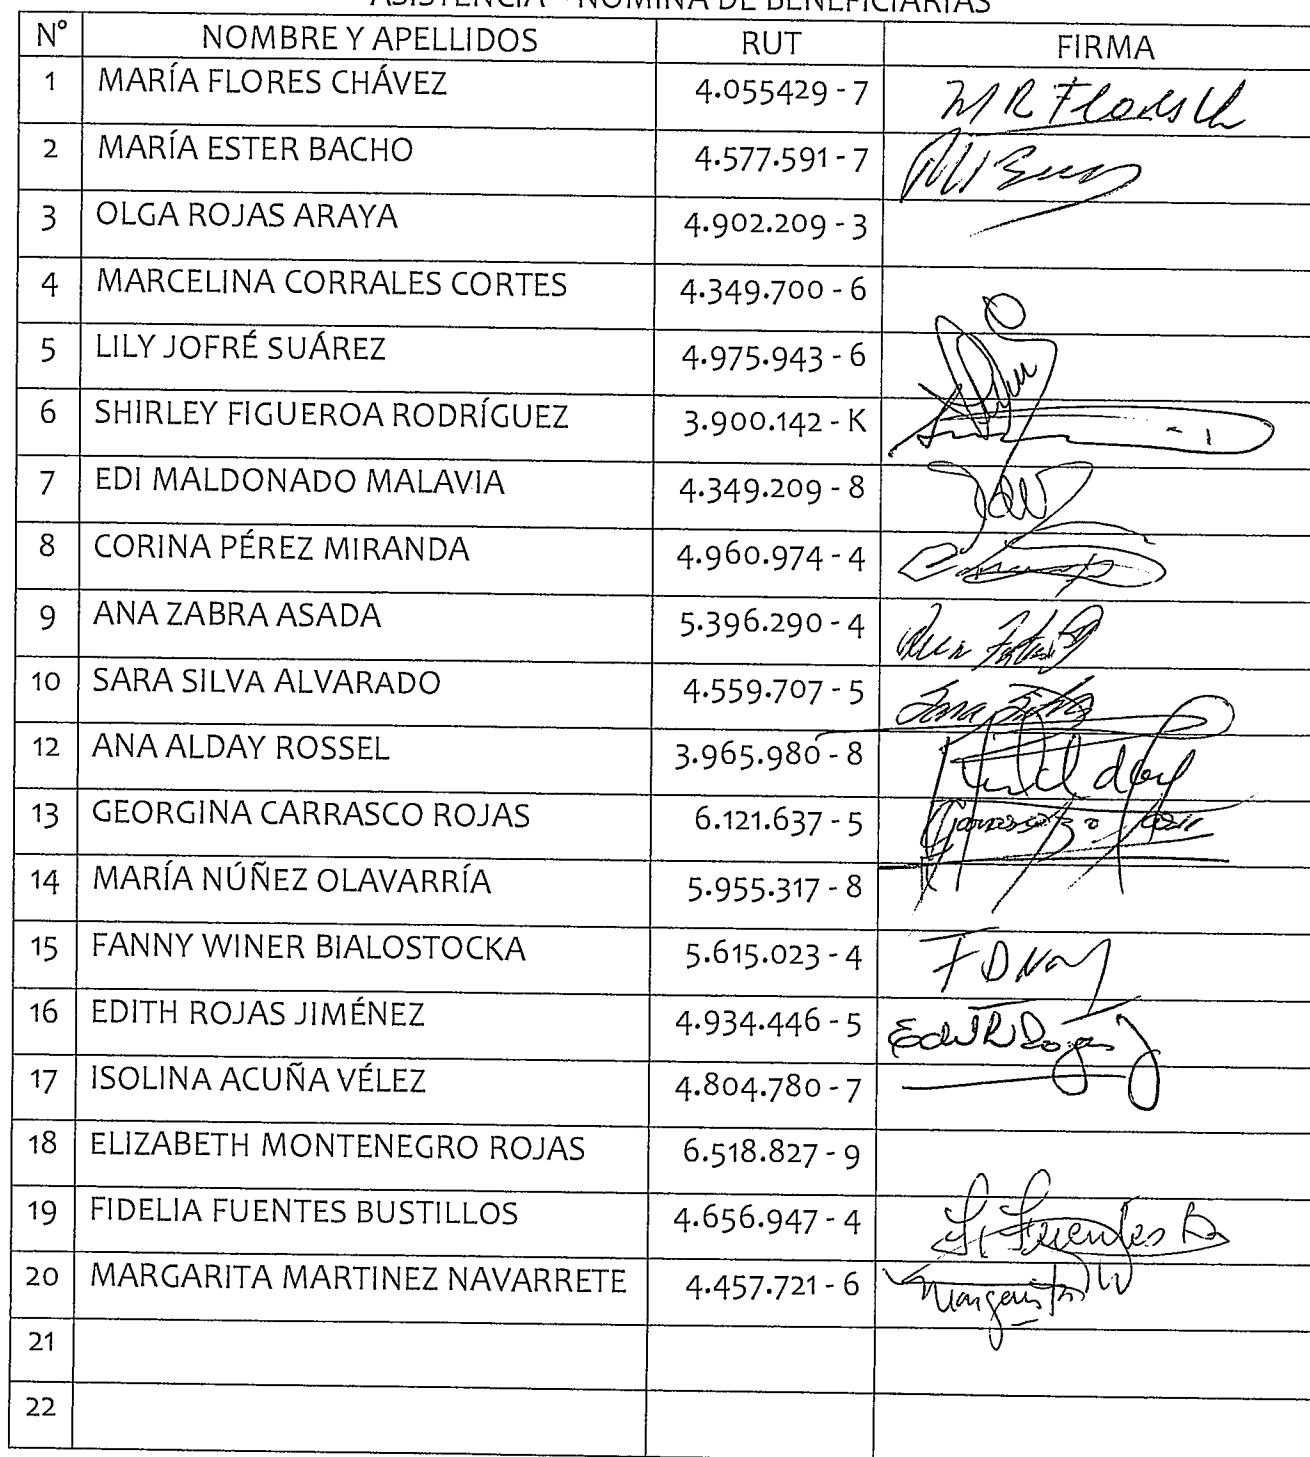 ASISTENCIA - NOMINA DE BENEFICIARIAS
N° NOMBRE Y APELLIDOS RUT FIRMA
1 MARÍA FLORES CHÁVEZ 4.055429 - 7 M R Flores Ch
2 MARÍA ESTER BACHO 4.577.591 - 7
3 OLGA ROJAS ARAYA 4.902.209 - 3
4 MARCELINA CORRALES CORTES 4.349.700 - 6
5 LILY JOFRÉ SUÁREZ 4.975.943 - 6
6 SHIRLEY FIGUEROA RODRÍGUEZ 3.900.142 - K
7 EDI MALDONADO MALAVIA 4.349.209 - 8
8 CORINA PÉREZ MIRANDA 4.960.974 - 4
9 ANA ZABRA ASADA 5.396.290 - 4
10 SARA SILVA ALVARADO 4.559.707 - 5 Sara Silva
12 ANA ALDAY ROSSEL 3.965.980 - 8
13 GEORGINA CARRASCO ROJAS 6.121.637 - 5
14 MARÍA NÚÑEZ OLAVARRÍA 5.955.317 - 8
15 FANNY WINER BIALOSTOCKA 5.615.023 - 4
16 EDITH ROJAS JIMÉNEZ 4.934.446 - 5 Edith Rojas J
17 ISOLINA ACUÑA VÉLEZ 4.804.780 - 7
18 ELIZABETH MONTENEGRO ROJAS 6.518.827 - 9
19 FIDELIA FUENTES BUSTILLOS 4.656.947 - 4 F. Fuentes B
20 MARGARITA MARTINEZ NAVARRETE 4.457.721 - 6 Margarita
21
22